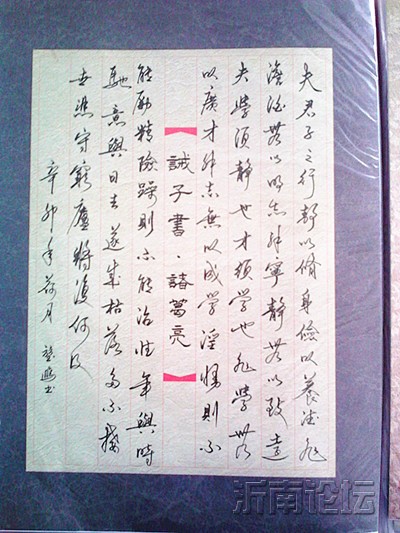 夫君子之行静以脩身儉以養德非
澹泊無以明志非寧静無以致遠
夫學須静也才須學也非學無
以廣才非志無以成學淫慢則不
誡子書·諸葛亮
能勵精險躁則不能治性年與時
馳意與日去遂成枯落多不接
世悲守窮廬將復何及
辛卯年荷月
浙南论坛